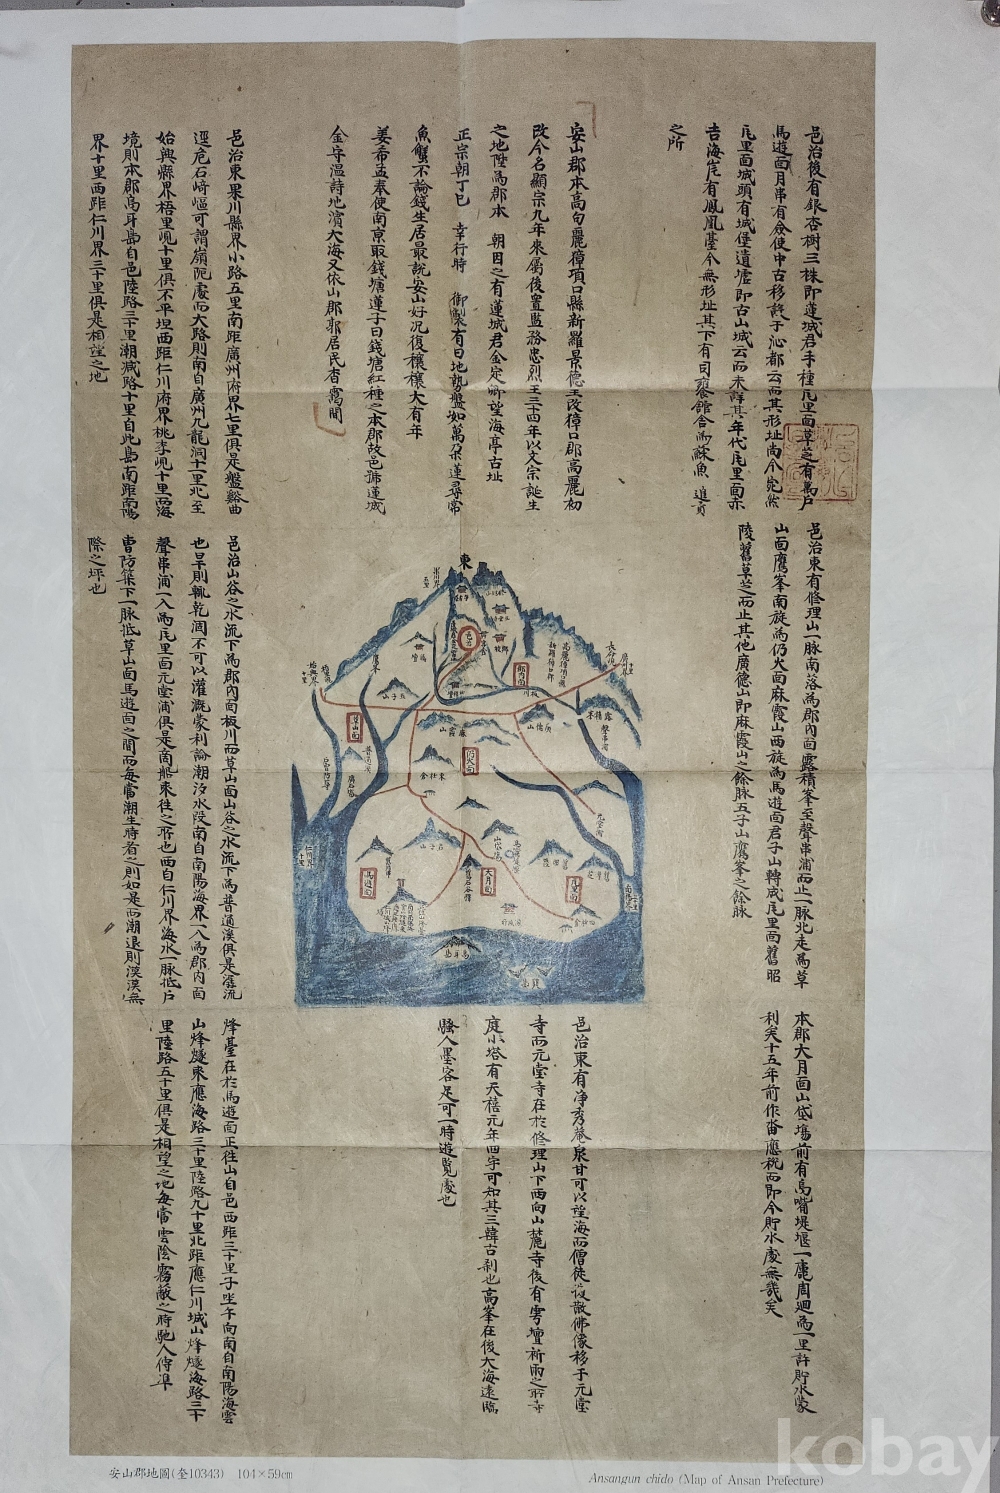 邑治後有銀杏樹三株即蓮城君手種瓦里面草芝有萬戶
馬遊面月串有僉使中古移設于沁都云而其形址尚今宛然
瓦里面城頭有城堡遺墟即古山城云而未詳其年代瓦里面亦
吉海崖有鳳凰臺今無形址其下有司饔館舍而蘇魚進貢
之所
安山郡本高句麗獐項口縣新羅景德王改獐口郡高麗初
改今名顯宗九年來屬後置監務忠烈王三十四年以文宗誕生
之地陞爲郡本 朝因之有蓮城君金定卿望海亭古址
正宗朝丁巳 幸行時 御製有曰地勢盤如萬朶蓮尋常
魚蟹不論錢生居最說安山好況復穰穰大有年
姜希孟奉使南京取錢塘蓮子曰錢塘紅種之本郡故邑號蓮城
金守溫詩地濱大海又依山郡郭居民杳靄間
邑治東果川縣界小路五里南距廣州府界七里俱是盤谿曲
逕危石崎嶇可謂嶺阨處而大路則南自廣州九龍洞十一里北至
始興縣界梧里峴十里俱不平坦西距仁川府界桃李峴十里而海
境則本郡烏耳島自邑陸路三十里潮減路十里自此島南距南陽
界十里西距仁川界三十里俱是相望之地
邑治東有修理山一脉南落爲郡內面露積峯至聲串浦而止一脉北走爲草
山面鷹峯南旋爲仍火面麻霞山西旋爲馬遊面君子山轉成瓦里面舊昭
陵舊草芝而止其他廣德山即麻霞山之餘脉五子山鷹峯之餘脉
邑治山谷之水流下爲郡內面板川而草山面山谷之水流下爲普通溪俱是涯流
也旱則輒乾涸不可以灌漑蒙利論潮汐水段南自南陽海界一入爲郡內面
聲串浦一入爲瓦里面元堂浦俱是商船來往之所也西自仁川界海水一脉抵戶
曹防築下一脉抵草山面馬遊面之間而每當潮生時看之則如是而潮退則漠漠無
際之坪也
東
郡內面
草山面
仍火面
馬遊面
大月面
瓦里面
本郡大月面山垈場前有烏嘴堤堰一處周廻爲一里許貯水蒙
利矣十五年前作畓應稅而即今貯水處無幾矣
邑治東有淨秀菴泉甘可以望海而僧徒散佛像移于元堂
寺而元堂寺在於修理山下西向山麓寺後有雩壇祈雨之所寺
庭小塔有天禧元年四字可知其三韓古刹也高峯在後大海遠臨
騷人墨客足可一時遊覽處也
烽臺在於馬遊面正往山自邑西距三十里子坐午向南自南陽海雲
山烽燧來應海路三十里陸路九十里北距應仁川城山烽燧海路三十
里陸路五十里俱是相望之地每當雲陰霧蔽之時馳人傳準
安山郡地圖(奎10343) 104×59cm
Ansangun chido (Map of Ansan Prefecture)
kobay